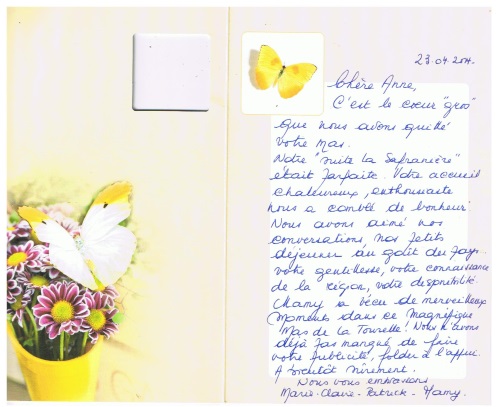 23.04.2014.
Chère Anne,
C'est le coeur "gros"
que nous avons quitté
votre Mas.
Notre "suite la Safranière"
était parfaite. Votre accueil
chaleureux, enthousiaste
nous a comblé de bonheur.
Nous avons aimé nos
conversations, nos petits
déjeuner au goût du pays.
votre gentillesse, votre connaissance
de la région, votre disponibilité.
Mamy a vécu de merveilleux
moments dans ce magnifique
Mas de la Tourelle! Nous n'avons
déjà pas manqué de faire
votre publicité, folder à l'appui.
A bientôt sûrement.
Nous vous embrassons
Marie-Claire - Patrick - Mamy.